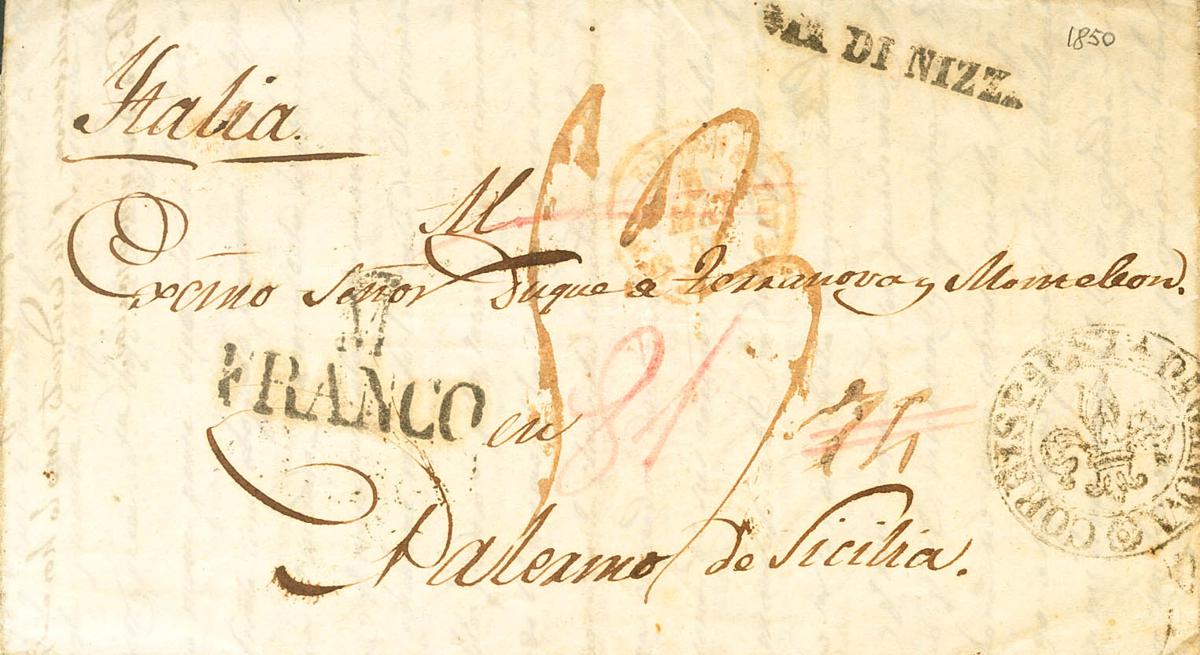 1850
DI NIZZ
Italia.
M
Excmo Señor Duque de Terranova y Monteleon.
M
FRANCO
en
81
Palermo de Sicilia.